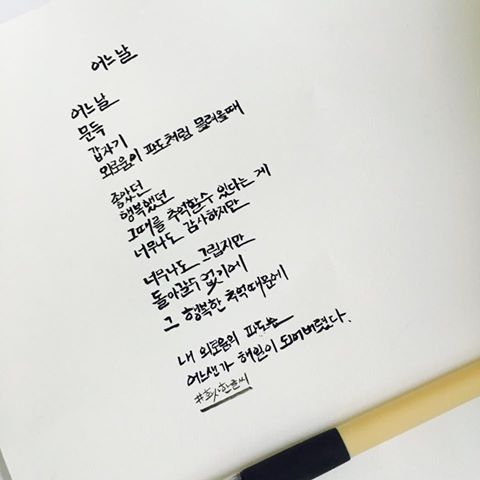 어느날
어느날
문득
갑자기
외로움이 파도처럼 밀려올때
좋았던
행복했던
그때를 추억할수 있다는 게
너무나도 감사하지만
너무나도 그립지만
돌아갈수 없기에
그 행복한 추억때문에
내 외로움의 파도는
어느샌가 해일이 되어버렸다.